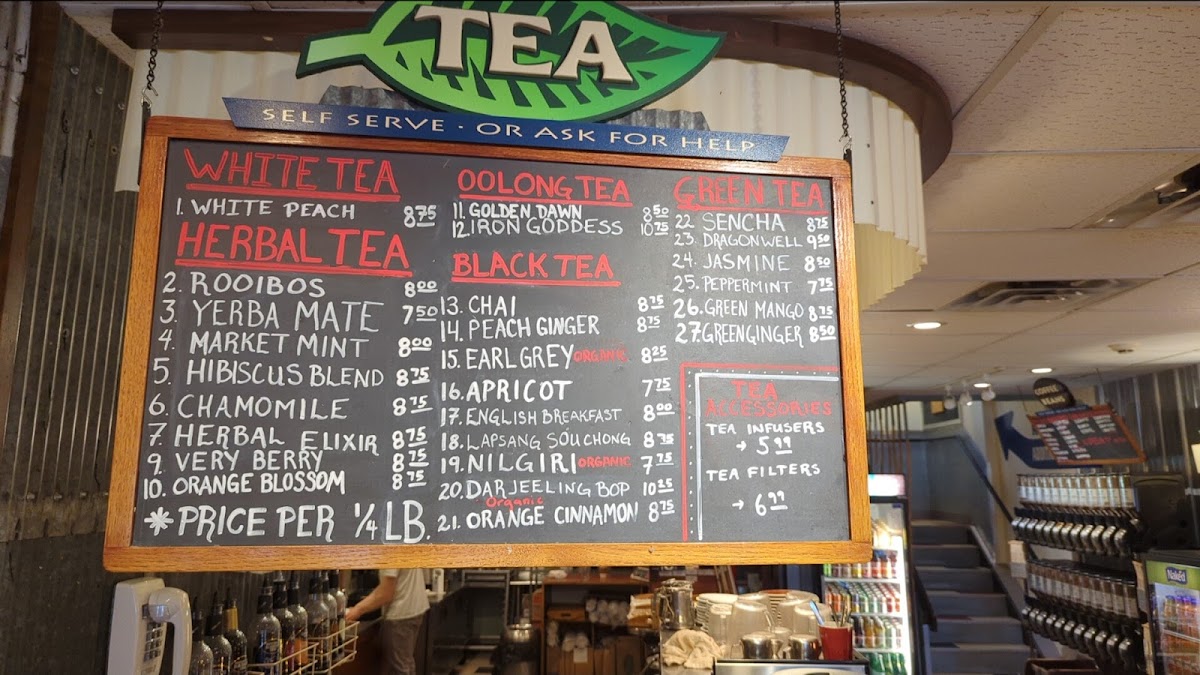 TEA
SELF SERVE · OR ASK FOR HELP
WHITE TEA
1. WHITE PEACH 8 75
HERBAL TEA
2. ROOIBOS 8 00
3. YERBA MATE 7 50
4. MARKET MINT 8 00
5. HIBISCUS BLEND 8 75
6. CHAMOMILE 8 75
7. HERBAL ELIXIR 8 75
9. VERY BERRY 8 75
10. ORANGE BLOSSOM 8 75
* PRICE PER 1/4 LB.
OOLONG TEA
11. GOLDEN DAWN 8 50
12. IRON GODDESS 10 75
BLACK TEA
13. CHAI 8 75
14. PEACH GINGER 8 75
15. EARL GREY ORGANIC 8 25
16. APRICOT 7 75
17. ENGLISH BREAKFAST 8 00
18. LAPSANG SOUCHONG 8 75
19. NILGIRI ORGANIC 7 75
20. DARJEELING BOP 10 25
Organic
21. ORANGE CINNAMON 8 75
GREEN TEA
22 SENCHA 8 75
23. DRAGONWELL 9 50
24. JASMINE 8 50
25. PEPPERMINT 7 75
26. GREEN MANGO 8 75
27. GREEN GINGER 8 50
TEA
ACCESSORIES
TEA INFUSERS
→ 5 99
TEA FILTERS
→ 6 99
COFFEE
BEANS
Naked